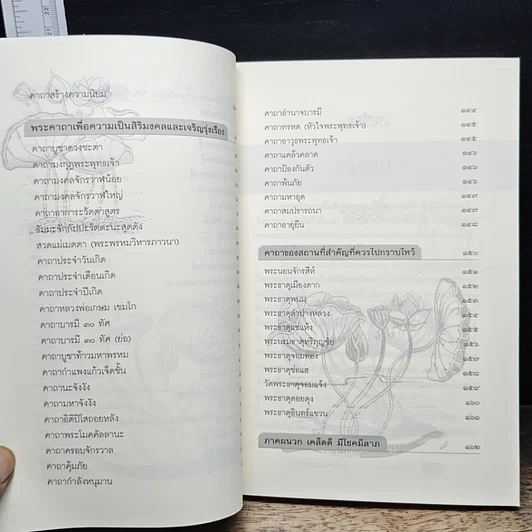 คาถาสร้างความนิยม
พระคาถาเพื่อความเป็นสิริมงคลและเจริญรุ่งเรือง
คาถาบูชาดวงชะตา
คาถามงกุฎพระพุทธเจ้า
คาถามงคลจักรวาฬน้อย
คาถามงคลจักรวาฬใหญ่
คาถาอาการะวัตตาสูตร
ธัมมะจักกัปปะวัตตะนะสุตตัง
สวดแผ่เมตตา (พระพรหมวิหารภาวนา)
คาถาประจำวันเกิด
คาถาประจำเดือนเกิด
คาถาประจำปีเกิด
คาถาหลวงพ่อเกษม เขมโก
คาถาบารมี ๓๐ ทัศ
คาถาบารมี ๓๐ ทัศ (ย่อ)
คาถาบูชาท้าวมหาพรหม
คาถากำแพงแก้วเจ็ดชั้น
คาถานะจังงัง
คาถามหาจังงัง
คาถาอิติปิโสถอยหลัง
คาถาพระโมคคัลลานะ
คาถาครอบจักรวาล
คาถาคุ้มภัย
คาถากำลังหนุมาน
คาถาอำนาจบารมี ๑๔๔
คาถาทรหด (หัวใจพระพุทธเจ้า) ๑๔๕
คาถาอาวุธพระพุทธเจ้า ๑๔๕
คาถาแคล้วคลาด ๑๔๖
คาถาป้องกันตัว ๑๔๖
คาถาพ้นภัย ๑๔๖
คาถามหาอุด ๑๔๗
คาถาสมปรารถนา ๑๔๗
คาถาอายุยืน ๑๔๘
คาถาของสถานที่สำคัญที่ควรไปกราบไหว้ ๑๕๐
พระนอนจักรสีห์ ๑๕๑
พระธาตุเมืองตาก ๑๕๒
พระธาตุพนม ๑๕๓
พระธาตุลำปางหลวง ๑๕๔
พระธาตุแช่แห้ง ๑๕๕
พระบรมธาตุหริภุญชัย ๑๕๖
พระธาตุจอมทอง ๑๕๗
พระธาตุช่อแฮ ๑๕๘
วัดพระธาตุจอมแจ้ง ๑๕๙
พระธาตุดอยตุง ๑๖๐
พระธาตุอินทร์แขวน ๑๖๑
ภาคผนวก เคล็ดดี มีโชคมีลาภ ๑๖๒